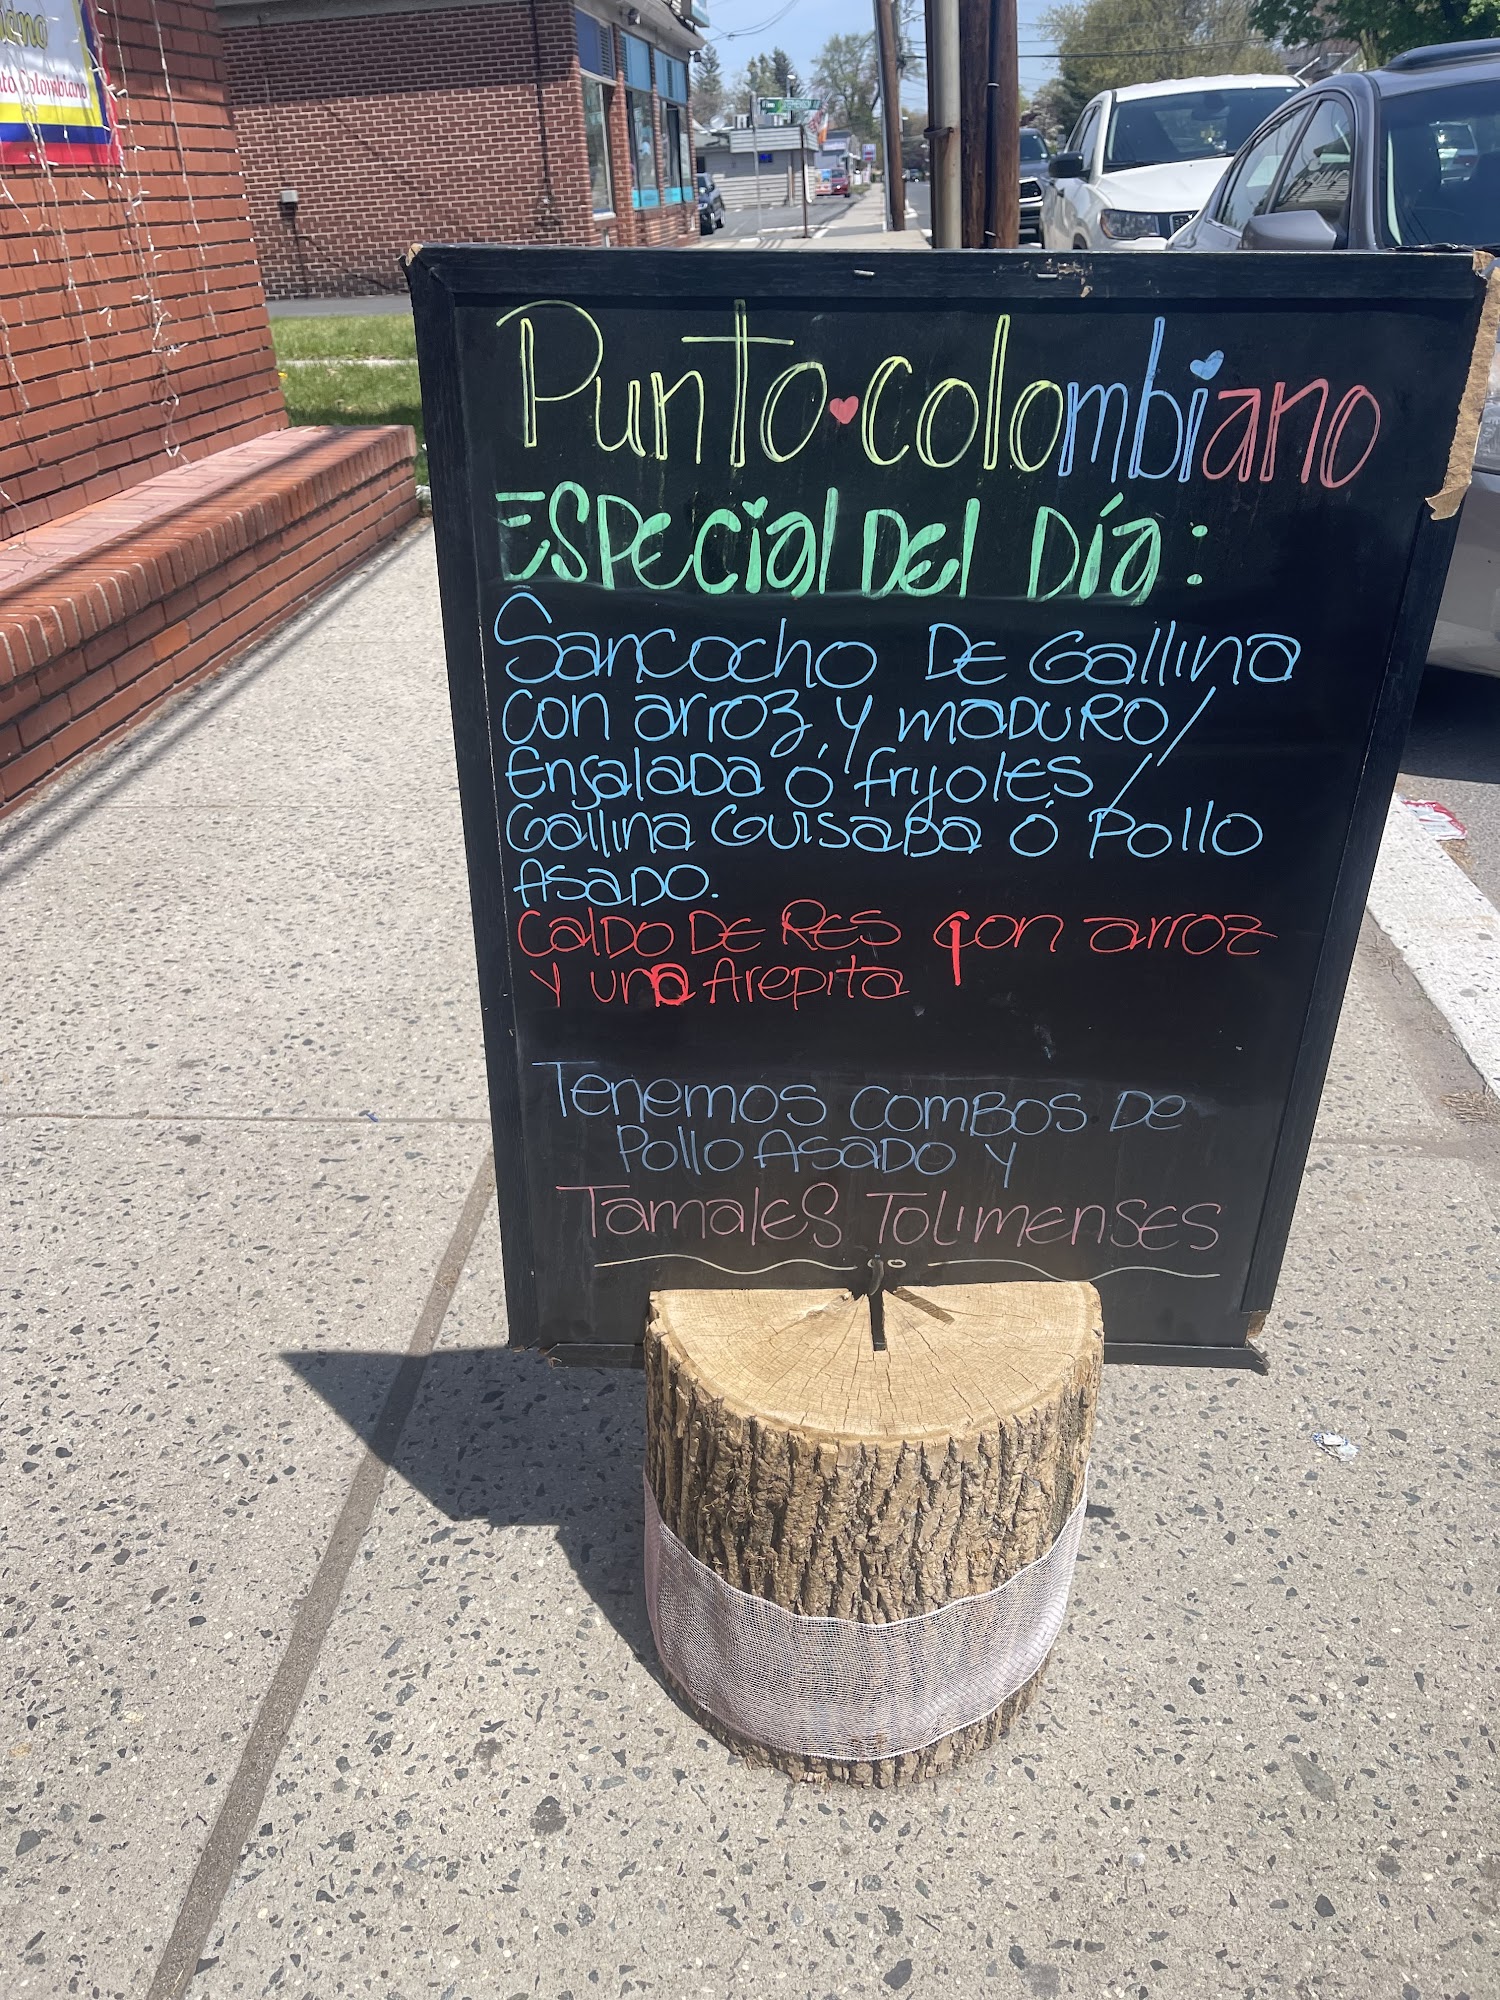 to Colombiano
Punto Colombiano
Especial Del Día:
Sancocho De Gallina
con arroz y maduro/
Ensalada ó frijoles/
Gallina Guisada ó Pollo
Asado.
Caldo De Res con arroz
y una Arepita
Tenemos combos de
Pollo Asado y
Tamales Tolimenses